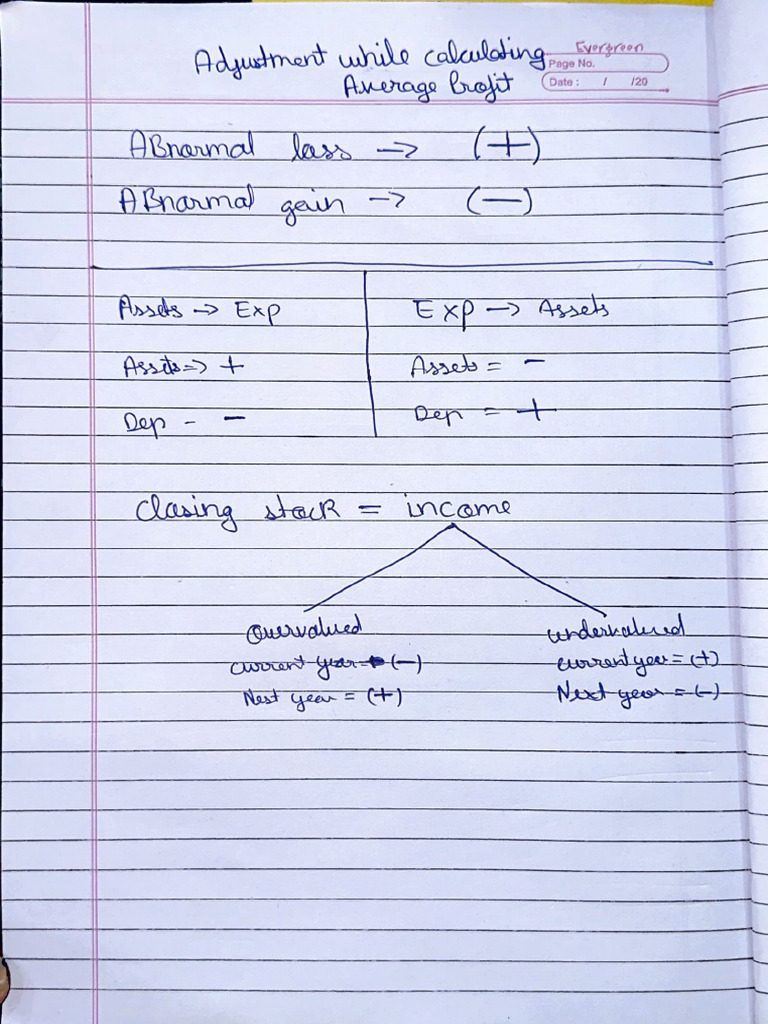 Evergreen
Adjustment while calculating
Page No.
Average Profit
Date : / /20
ABnormal loss → (+)
ABnormal gain → (—)
Assets → Exp
Assets => +
Dep - -
Exp → Assets
Assets = -
Dep = +
Closing stock = income
overvalued
current year - (-)
Nest year = (+)
undervalued
current year = (+)
Next year = (-)